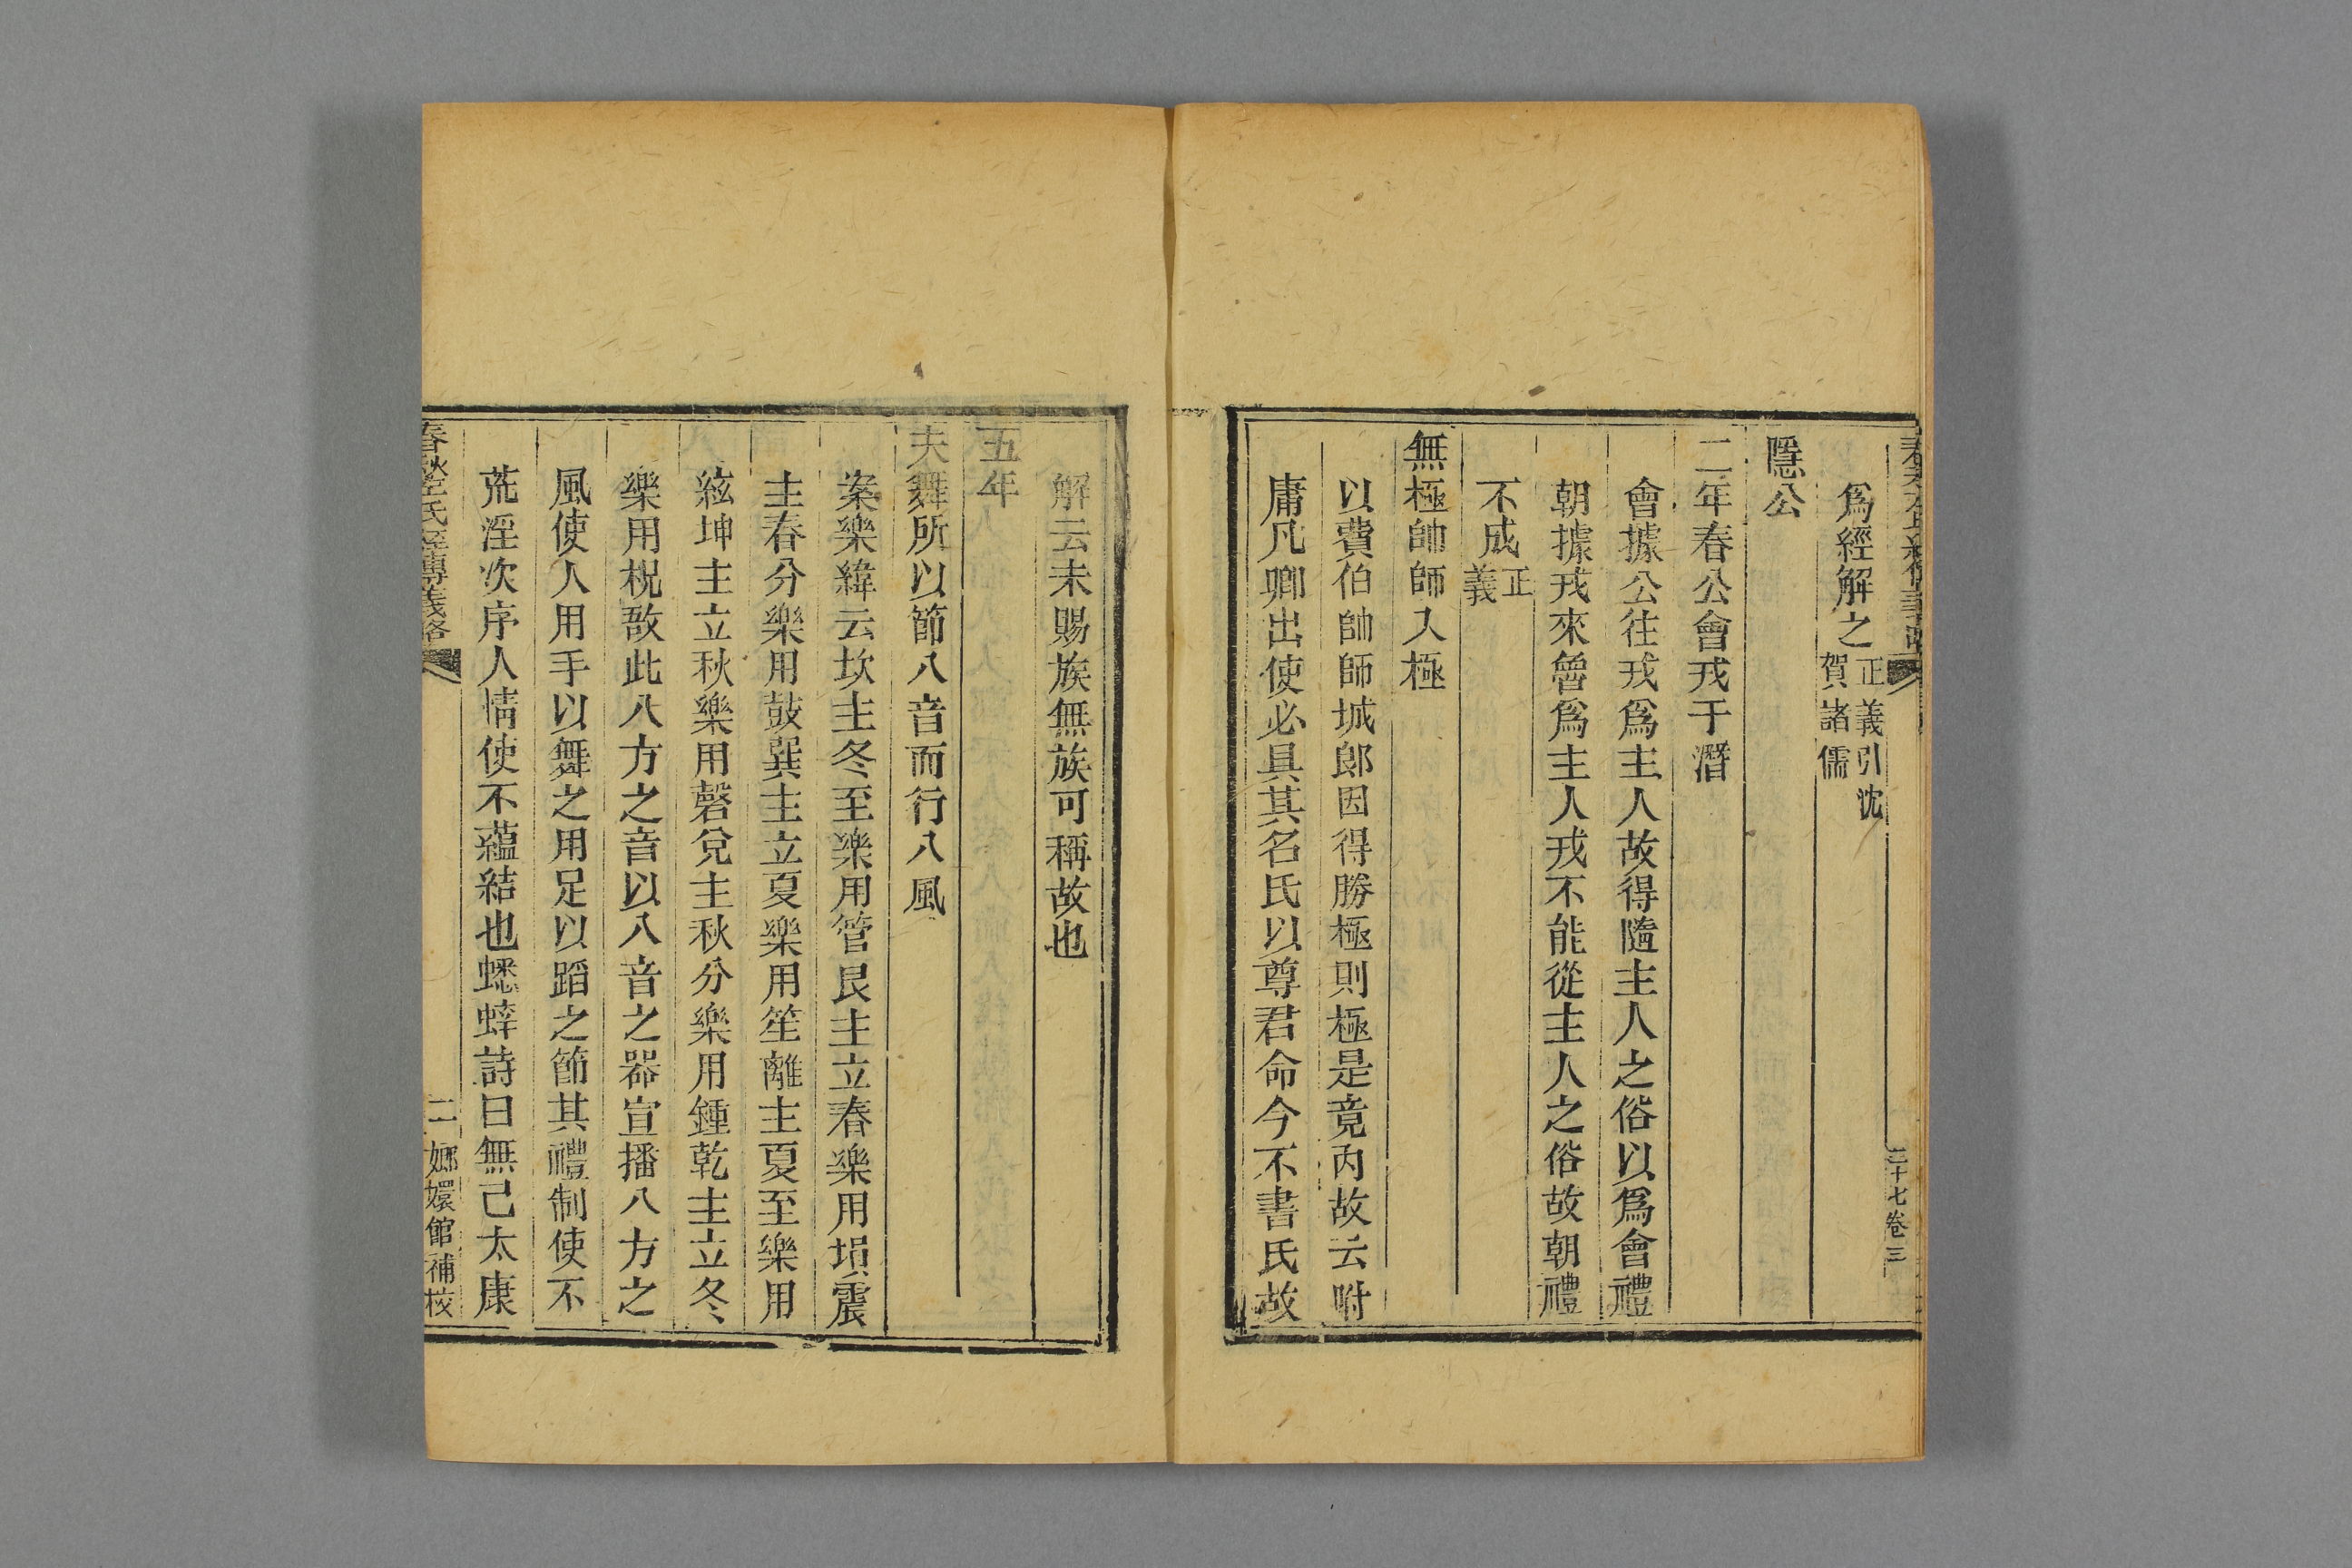 三十七卷三
爲經解之正義引沈
賀諸儒
隱公
二年春公會戎于潛
會據公往戎爲主人故得隨主人之俗以爲會禮
朝據戎來魯爲主人戎不能從主人之俗故朝禮
不成正
義
無極帥師入極
以費伯帥師城郎因得勝極則極是竟內故云附
庸凡卿出使必具其名氏以尊君命今不書氏故
解云未賜族無族可稱故也
五年
夫舞所以節八音而行八風
案樂緯云坎主冬至樂用管艮主立春樂用塤震
主春分樂用鼓巽主立夏樂用笙離主夏至樂用
絃坤主立秋樂用磬兌主秋分樂用鍾乾主立冬
樂用柷敔此八方之音以八音之器宣播八方之
風使人用手以舞之用足以蹈之節其禮制使不
荒淫次序人情使不蘊結也蟋蟀詩曰無己太康
春秋左氏經傳義略
二
嫏嬛館補校